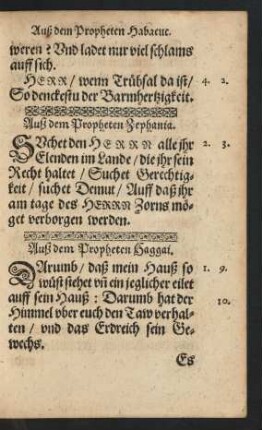 Auß dem Propheten Habacuc.
weren? Vnd ladet nur viel schlams
auff sich.
HERR/ wenn Trübsal da ist/ 4. 2.
So denckestu der Barmhertzigkeit.
Auß dem Propheten Zephania.
SVchet den HERRN alle jhr 2. 3.
Elenden im Lande/ die jhr sein
Recht haltet/ Suchet Gerechtig
keit/ suchet Demut/ Auff daß jhr
am tage des HERRN Zorns mö-
get verborgen werden.
Auß dem Propheten Haggai.
DArumb/ daß mein Hauß so 1. 9.
wüst stehet vñ ein jeglicher eilet
auff sein Hauß: Darumb hat der
Himmel vber euch den Taw verhal- 10.
ten/ vnd das Erdreich sein Ge-
wechs.
Es